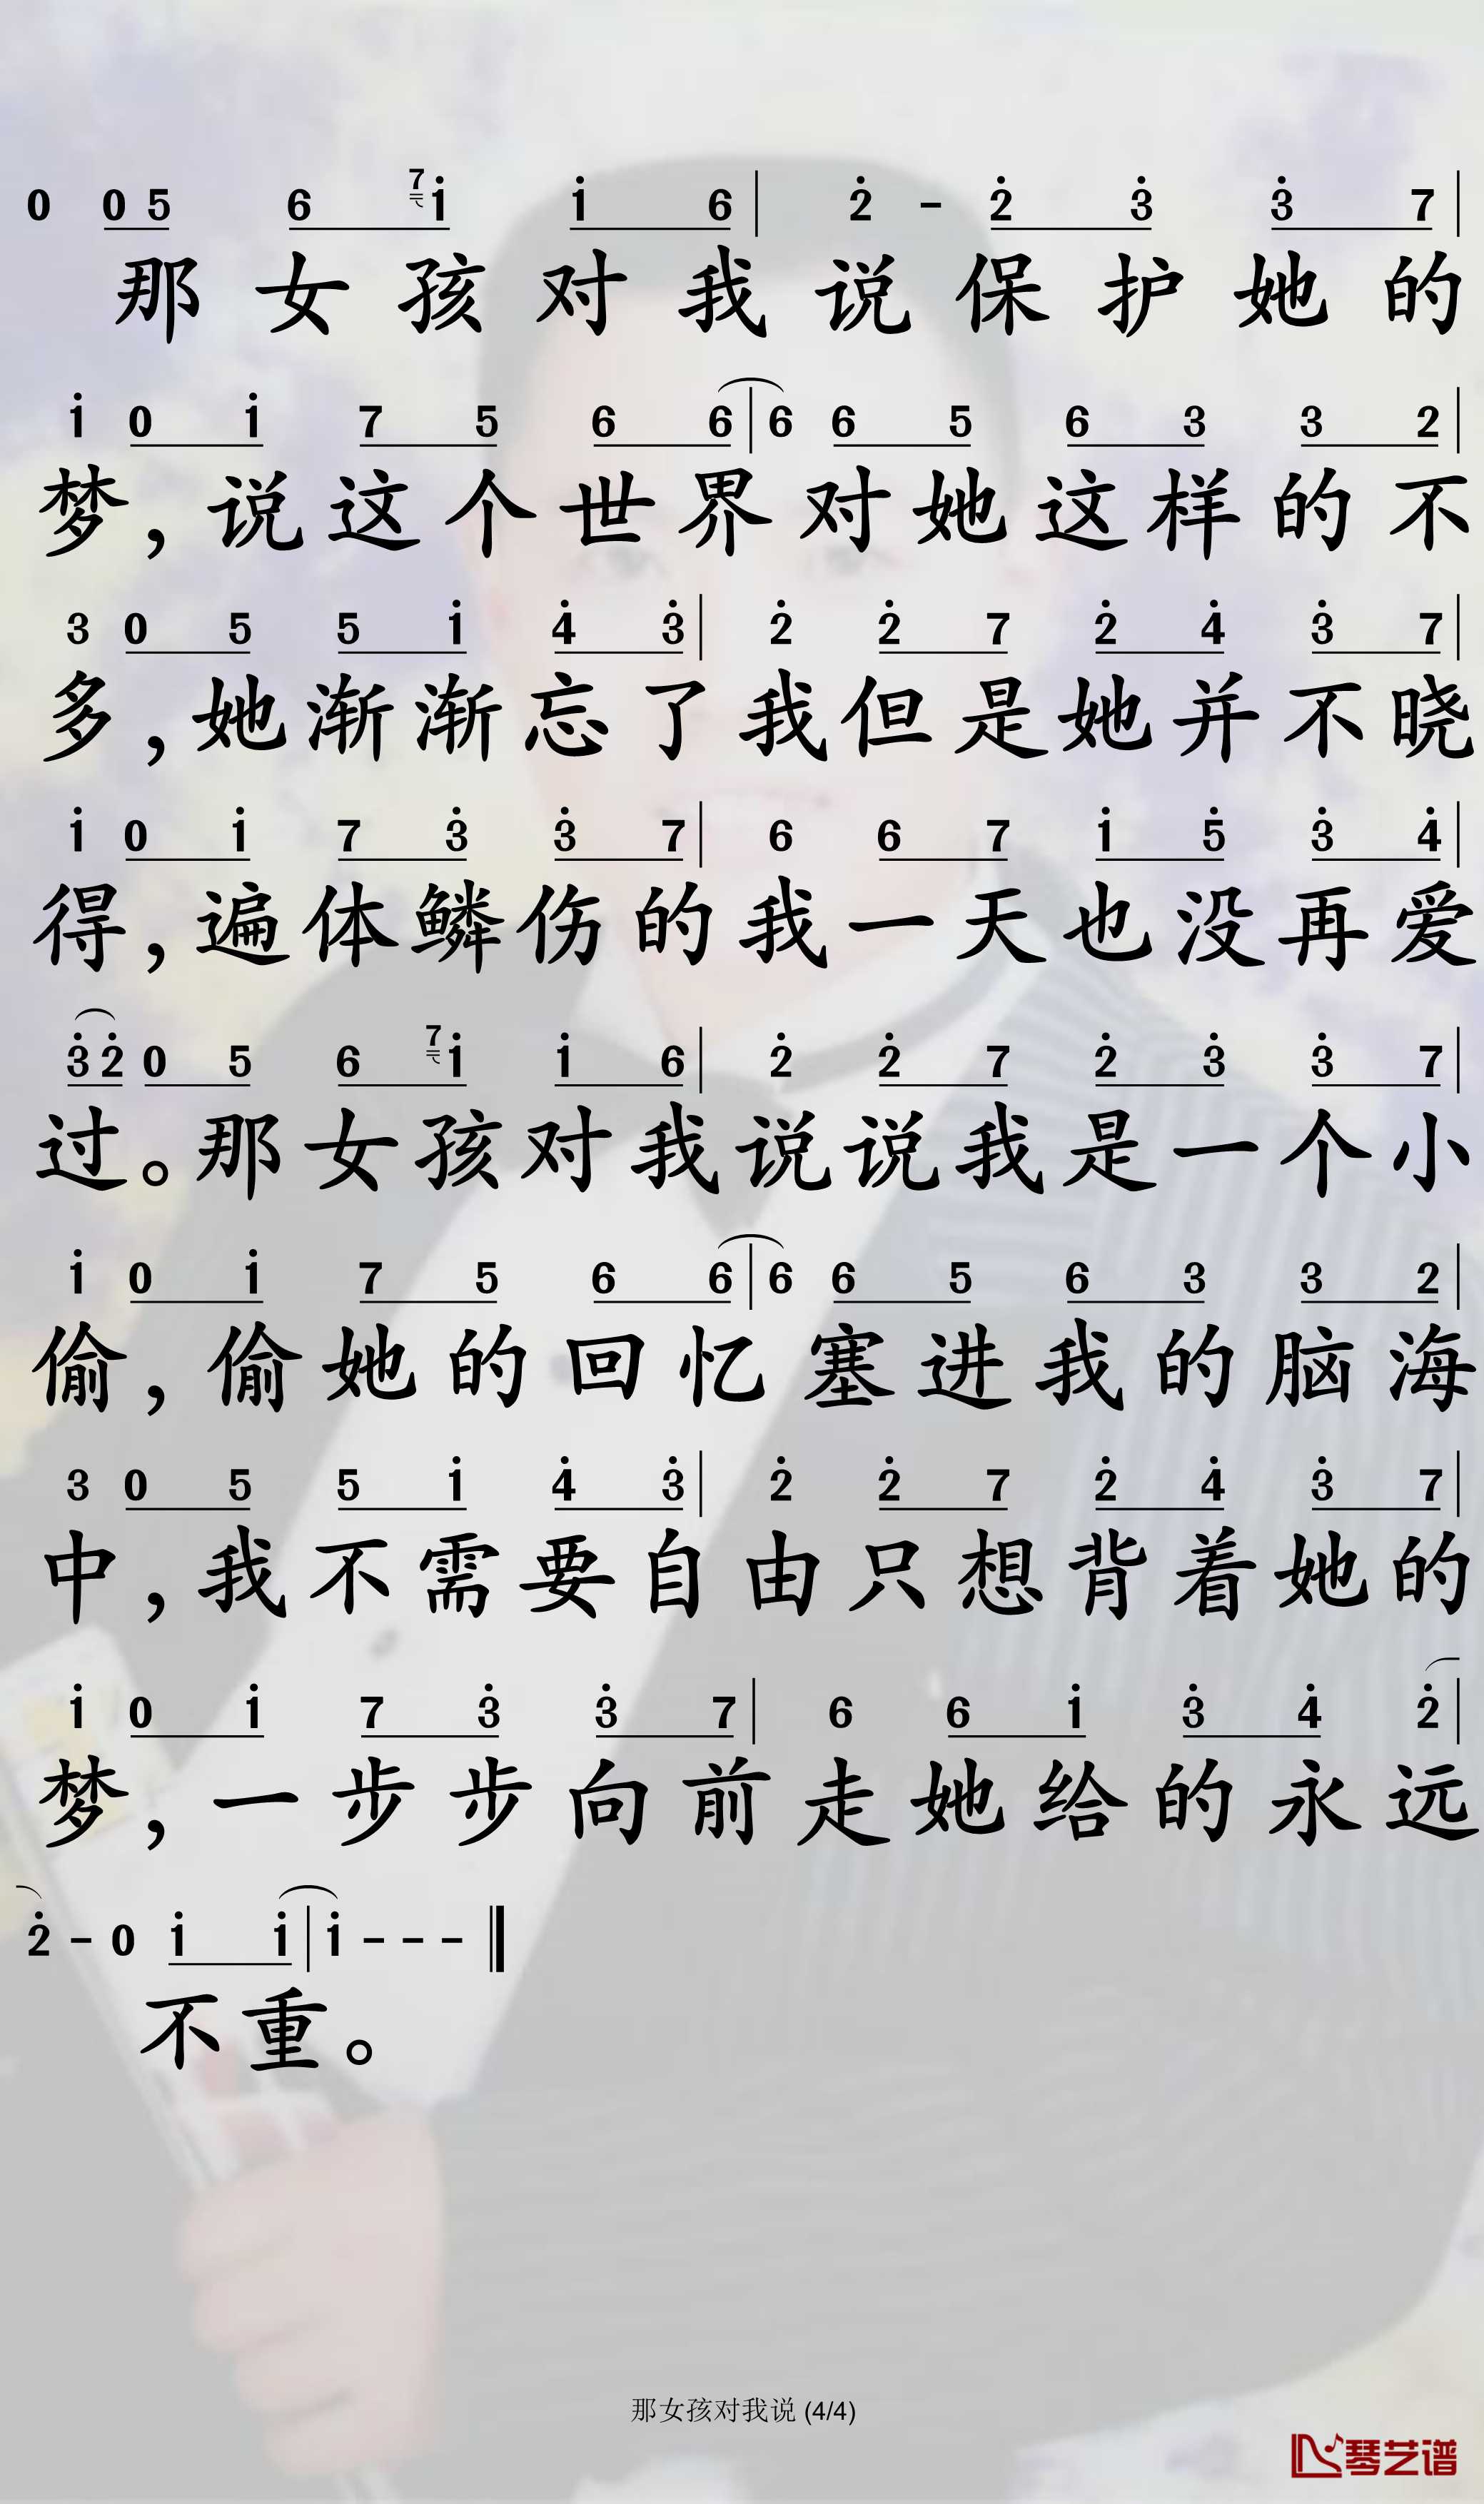 0 0 5 6 7 i i 6 | 2̇ - 2̇ 3̇ 3̇ 7 |
那女孩对我说保护她的
i 0 i 7 5 6 6 | 6 6 5 6 3 3 2 |
梦，说这个世界对她这样的不
3 0 5 5 i 4̇ 3̇ | 2̇ 2̇ 7 2̇ 4̇ 3̇ 7 |
多，她渐渐忘了我但是她并不晓
i 0 i 7 3̇ 3̇ 7 | 6 6 7 i 5̇ 3̇ 4̇ |
得，遍体鳞伤的我一天也没再爱
3̇ 2̇ 0 5 6 7 i i 6 | 2̇ 2̇ 7 2̇ 3̇ 3̇ 7 |
过。那女孩对我说说我是一个小
i 0 i 7 5 6 6 | 6 6 5 6 3 3 2 |
偷，偷她的回忆塞进我的脑海
3 0 5 5 i 4̇ 3̇ | 2̇ 2̇ 7 2̇ 4̇ 3̇ 7 |
中，我不需要自由只想背着她的
i 0 i 7 3̇ 3̇ 7 | 6 6 i 3̇ 4̇ 2̇ |
梦，一步步向前走她给的永远
2̇ - 0 i i | i - - - ‖
不重。
那女孩对我说 (4/4)
琴艺谱